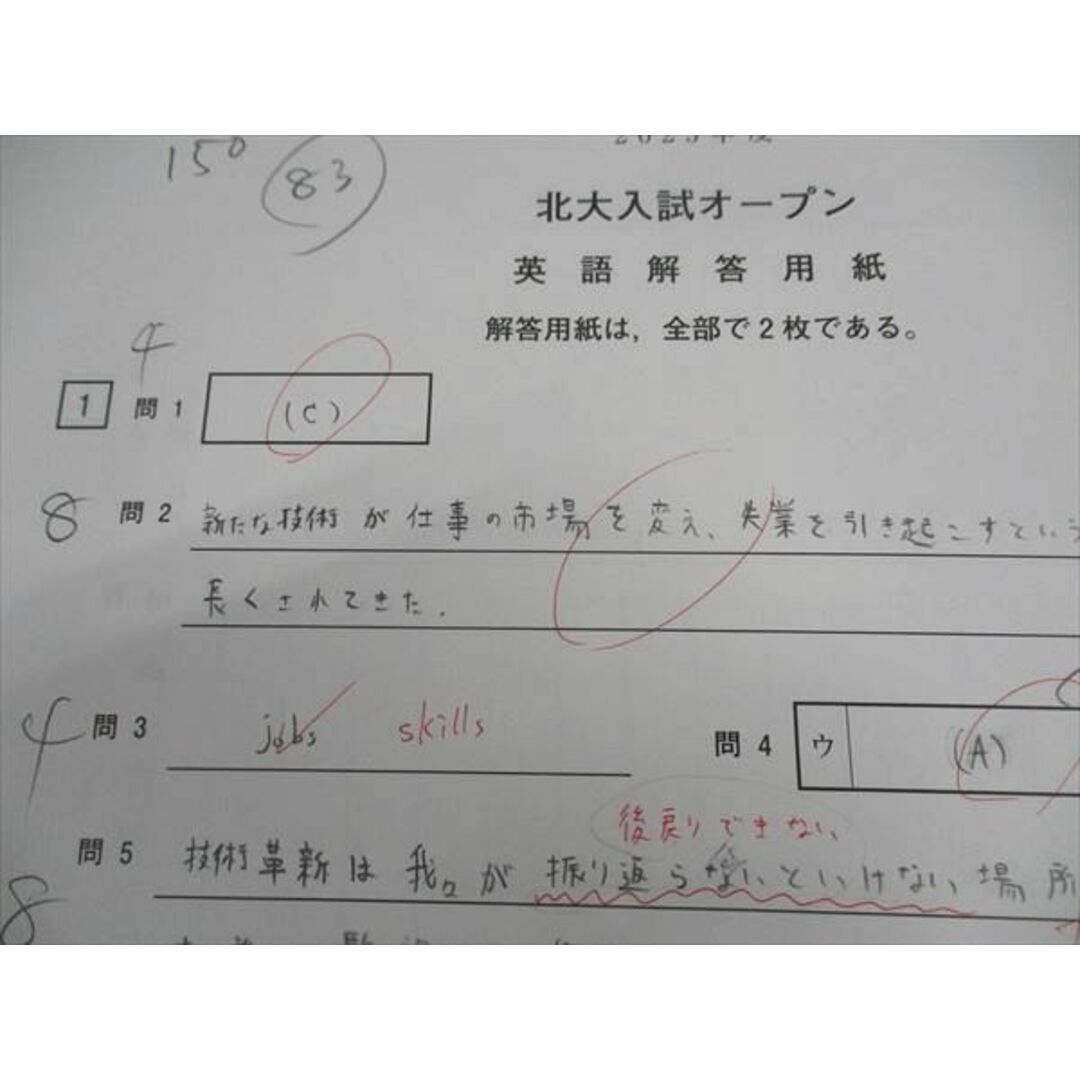 150 83
北大入試オープン
英語解答用紙
解答用紙は,全部で2枚である。
4
1 問1 (C)
8 問2 新たな技術が仕事の市場を変え、失業を引き起こすという
長くされてきた.
4 問3 jobs skills 問4 ウ (A)
後戻りできない
8 問5 技術革新は我々が振り返らないといけない場所